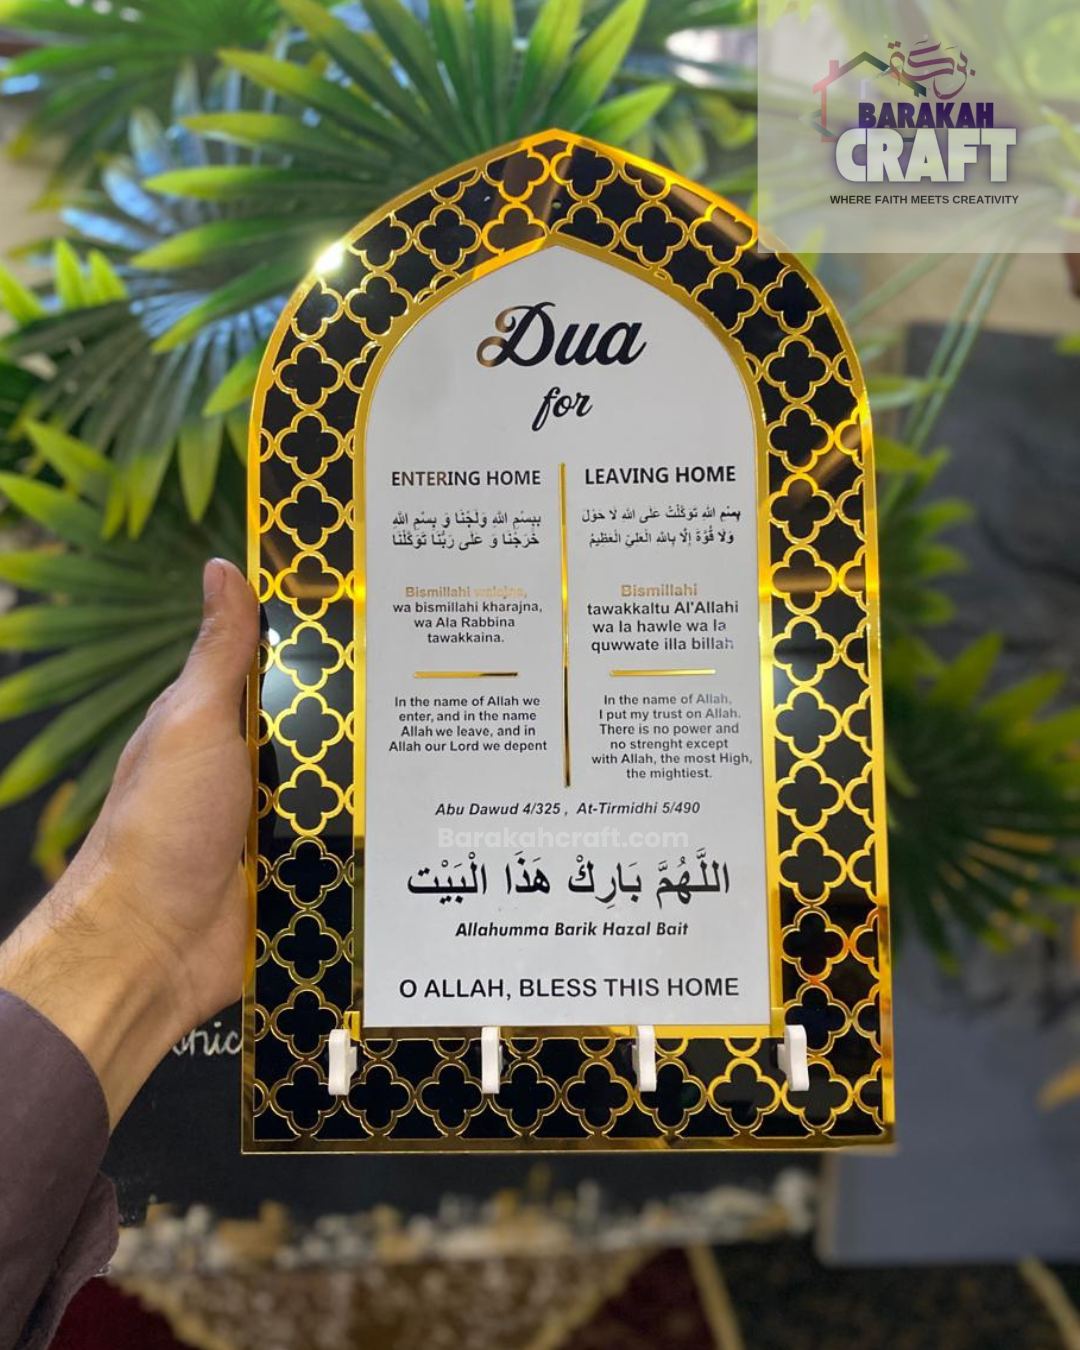 بركة
BARAKAH
CRAFT
WHERE FAITH MEETS CREATIVITY
Dua
for
ENTERING HOME
بِسْمِ اللهِ وَلَجْنَا وَ بِسْمِ اللهِ
خَرَجْنَا وَ عَلَى رَبِّنَا تَوَكَّلْنَا
Bismillahi walajna,
wa bismillahi kharajna,
wa Ala Rabbina
tawakkaina.
In the name of Allah we
enter, and in the name
Allah we leave, and in
Allah our Lord we depent
LEAVING HOME
بِسْمِ اللهِ تَوَكَّلْتُ عَلَى اللهِ لَا حَوْلَ
وَلَا قُوَّةَ إِلَّا بِاللهِ الْعَلِيِّ الْعَظِيْمُ
Bismillahi
tawakkaltu Al'Allahi
wa la hawle wa la
quwwate illa billah
In the name of Allah,
I put my trust on Allah.
There is no power and
no strenght except
with Allah, the most High,
the mightiest.
Abu Dawud 4/325 , At-Tirmidhi 5/490
Barakahcraft.com
اللَّهُمَّ بَارِكْ هَذَا الْبَيْت
Allahumma Barik Hazal Bait
O ALLAH, BLESS THIS HOME